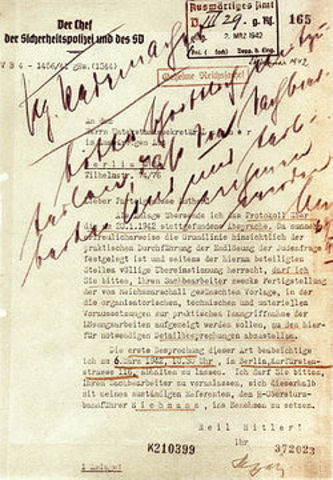 Der Chef
der Sicherheitspolizei und des SD
Auswärtiges Amt
D III 29 g. Rs.
2. MRZ 1942
165
Geheime Reichssache!
Pg. Rademacher
An den
Herrn Unterstaatssekretär
Auswärtigen Amt
Berlin
Wilhelmstr. 74/76
bitte
Lieber Parteigenosse Luther!
Anlage übersende ich das Protokoll über
die 20.1.1942 stattgefundene Besprechung. Da nunmehr
erfreulicherweise die Grundlinie hinsichtlich der
praktischen Durchführung der Endlösung der Judenfrage
festgelegt ist und seitens der hieran beteiligten
Stellen völlige Übereinstimmung herrscht, darf ich
Sie bitten, Ihren Sachbearbeiter zwecks Fertigstellung
der vom Reichsmarschall gewünschten Vorlage, in der
die organisatorischen, technischen und materiellen
Voraussetzungen zur praktischen Inangriffnahme der
Lösungsarbeiten aufgezeigt werden sollen, zu den
hierfür notwendigen Detailbesprechungen abzustellen.
Die erste Besprechung dieser Art beabsichtige
ich am 6. März 1942, 10.30 Uhr, in Berlin, Kurfürsten-
strasse 116, abhalten zu lassen. Ich darf Sie bitten,
Ihren Sachbearbeiter zu veranlassen, sich dieserhalb
mit meinem zuständigen Referenten, dem SS-Obersturm-
bannführer Eichmann, ins Benehmen zu setzen.
Heil Hitler!
Ihr
K210399
372023
1 Anlage!